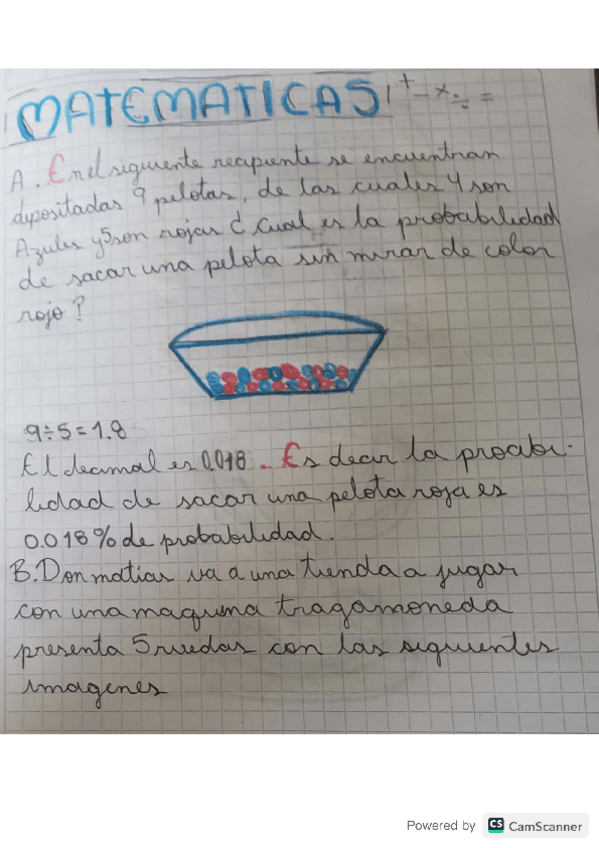 MATEMATICAS / + - x ÷ =
A. En el siguiente recipiente se encuentran
dipositadas 9 pelotas, de las cuales 4 son
Azules y 5 son rojas ¿ Cual es la probabilidad
de sacar una pelota sin mirar de color
rojo?
9÷5=1.8
El decimal es 0.018. Es decir la proabi-
lidad de sacar una pelota roja es
0.018% de probabilidad.
B. Don matias va a una tienda a jugar
con una maquina tragamoneda
presenta 5 ruedas con las siguientes
imagenes
Powered by CS CamScanner